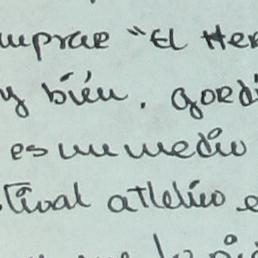 mprae "El Her
y bién. gord
es un medio
tival atletico e